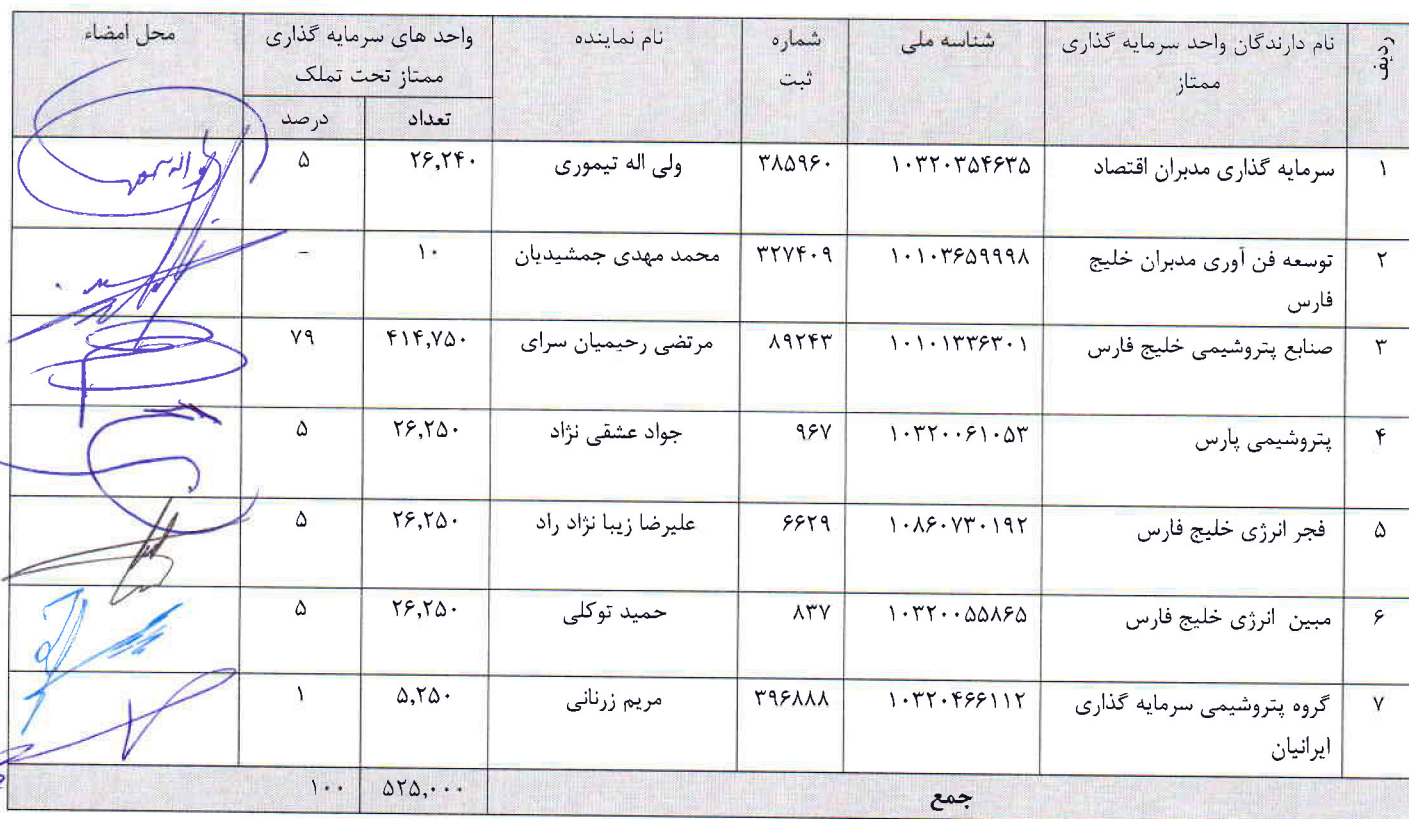 ردیف
نام دارندگان واحد سرمایه گذاری
ممتاز
شناسه ملی
شماره
ثبت
نام نماینده
واحد های سرمایه گذاری
ممتاز تحت تملک
تعداد
درصد
محل امضاء
۱ سرمایه گذاری مدبران اقتصاد ۱۰۳۲۰۳۵۴۶۳۵ ۳۸۵۹۶۰ ولی اله تیموری ۲۶,۲۴۰ ۵
۲ توسعه فن آوری مدبران خلیج ۱۰۱۰۳۶۵۹۹۹۸ ۳۲۷۴۰۹ محمد مهدی جمشیدیان ۱۰ -
فارس
۳ صنایع پتروشیمی خلیج فارس ۱۰۱۰۱۳۳۶۳۰۱ ۸۹۲۴۳ مرتضی رحیمیان سرای ۴۱۴,۷۵۰ ۷۹
۴ پتروشیمی پارس ۱۰۳۲۰۰۶۱۰۵۳ ۹۶۷ جواد عشقی نژاد ۲۶,۲۵۰ ۵
۵ فجر انرژی خلیج فارس ۱۰۸۶۰۷۳۰۱۹۲ ۶۶۲۹ علیرضا زیبا نژاد راد ۲۶,۲۵۰ ۵
۶ مبین انرژی خلیج فارس ۱۰۳۲۰۰۵۵۸۶۵ ۸۳۷ حمید توکلی ۲۶,۲۵۰ ۵
۷ گروه پتروشیمی سرمایه گذاری ۱۰۳۲۰۴۶۶۱۱۲ ۳۹۶۸۸۸ مریم زرنانی ۵,۲۵۰ ۱
ایرانیان
جمع ۵۲۵,۰۰۰ ۱۰۰